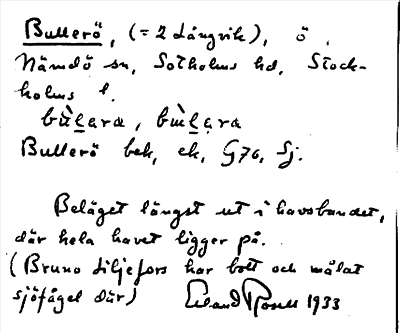 Bullerö, (= 2 Långvik), ö.
Nämdö sn, Sotholms hd, Stock-
holms l.
bu̇̀lara, bu̇̀lara
Bullerö bek, ek, G76, Sj.
Beläget längst ut i havsbandet,
där hela havet ligger på.
(Bruno Liljefors har bott och målat
sjöfågel där) Erland Rosell 1933